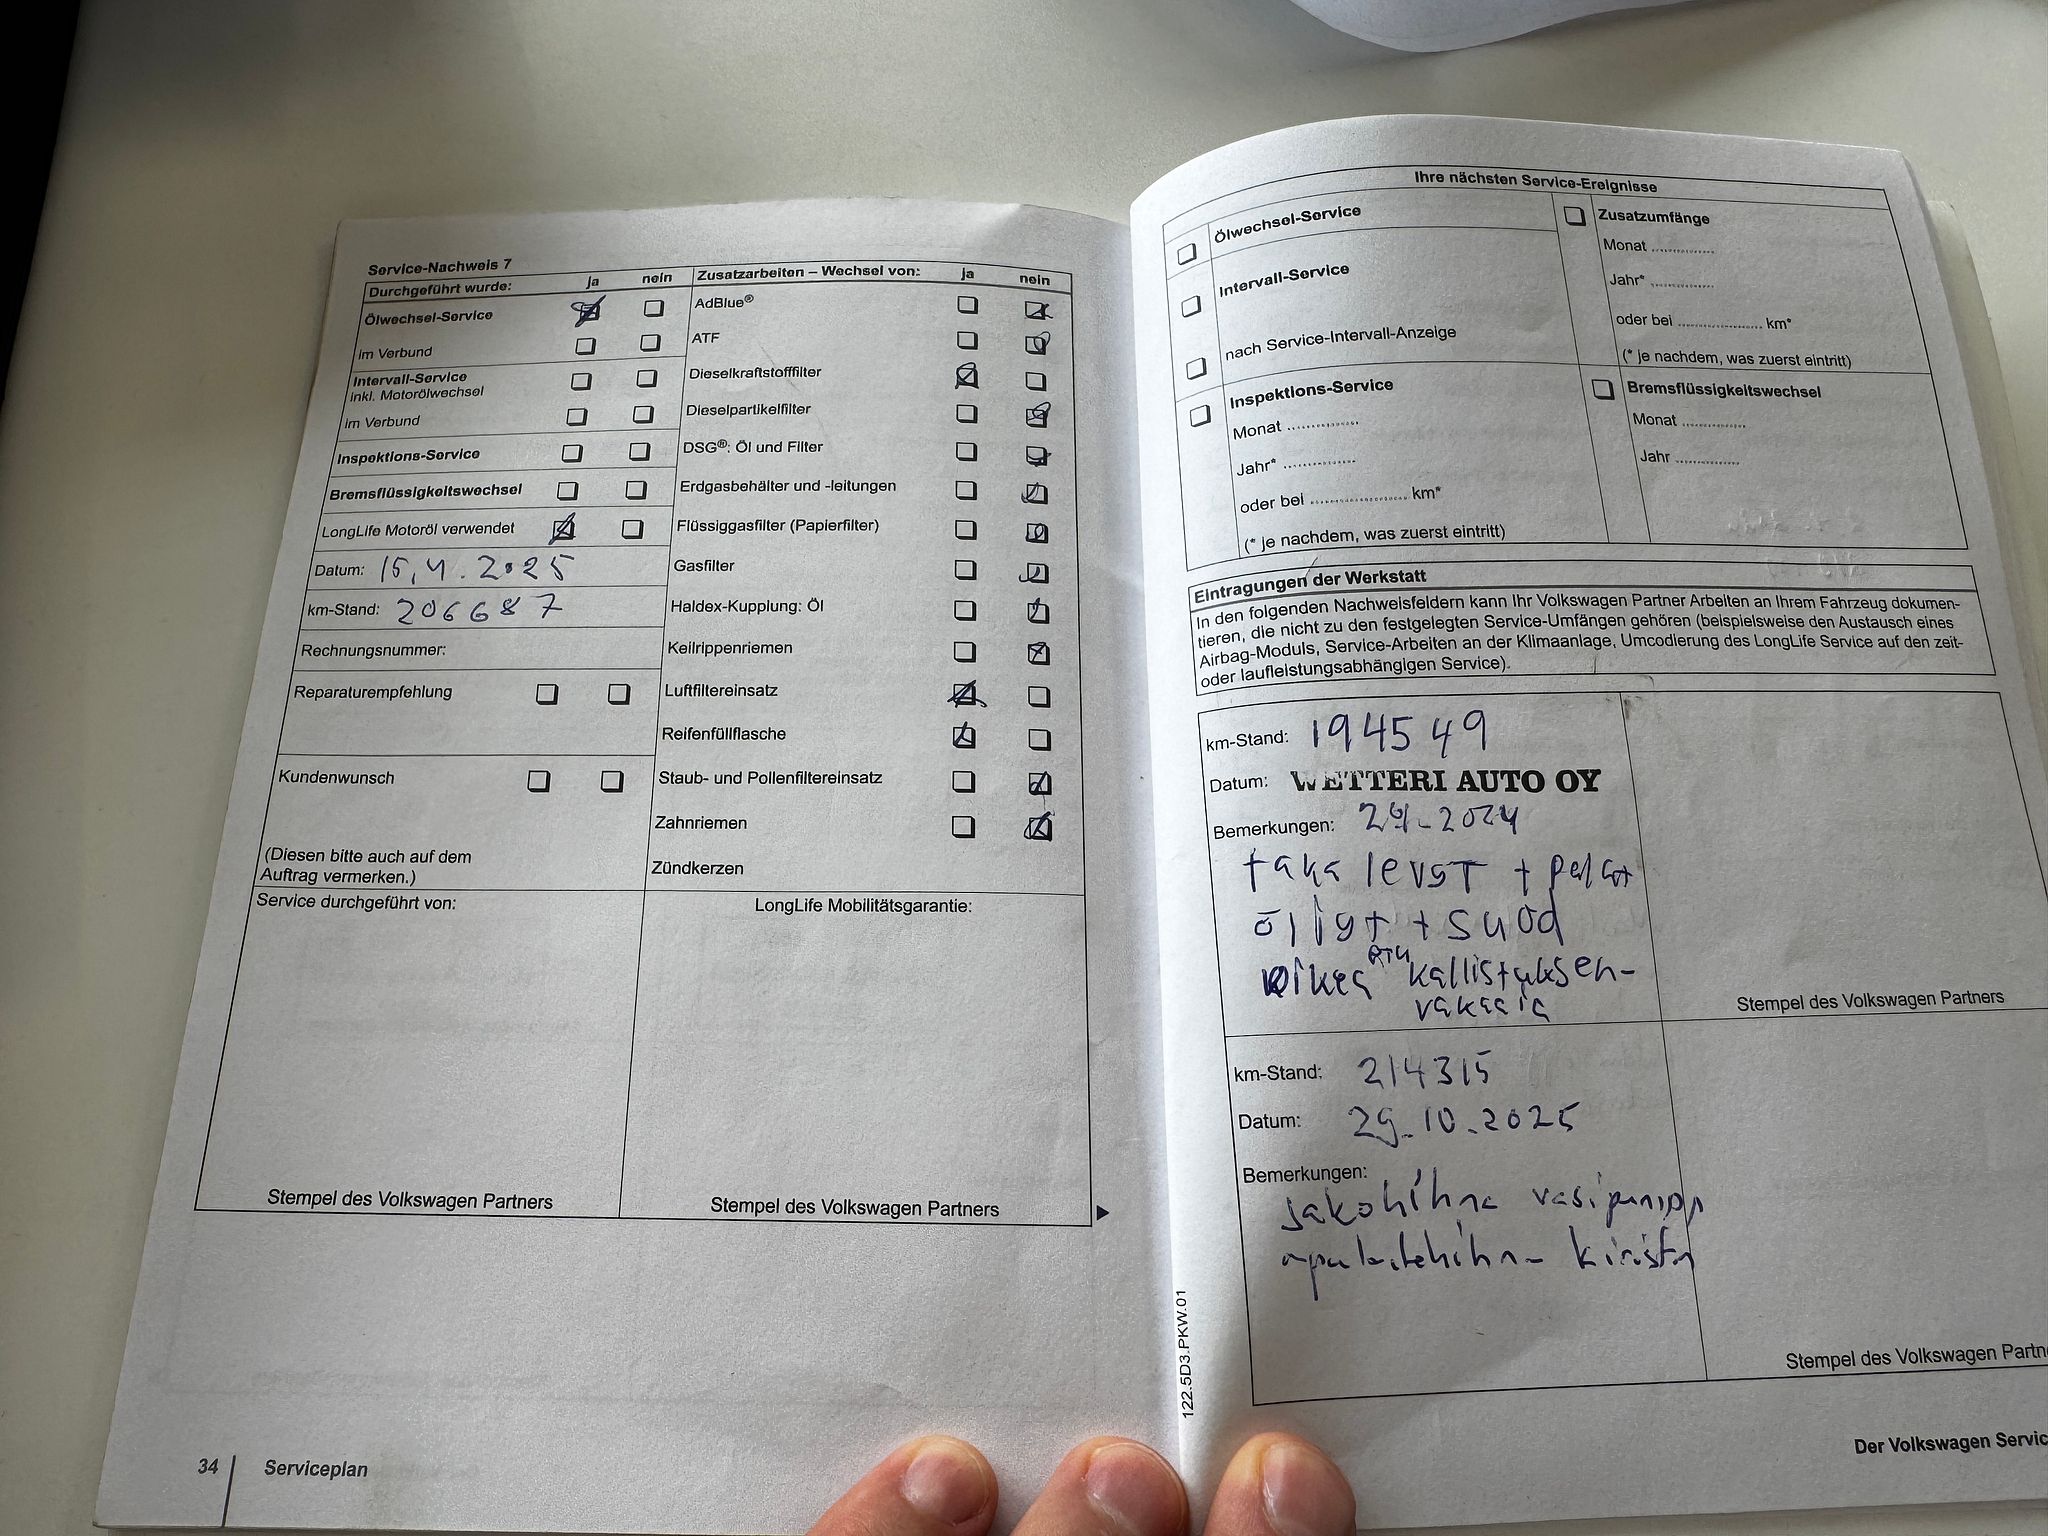 Service-Nachweis 7
Durchgeführt wurde: ja nein
Ölwechsel-Service
im Verbund
Intervall-Service
inkl. Motorölwechsel
im Verbund
Inspektions-Service
Bremsflüssigkeitswechsel
LongLife Motoröl verwendet
Datum: 15.4.2025
km-Stand: 206687
Rechnungsnummer:
Reparaturempfehlung
Kundenwunsch
(Diesen bitte auch auf dem
Auftrag vermerken.)
Zusatzarbeiten – Wechsel von: ja nein
AdBlue®
ATF
Dieselkraftstofffilter
Dieselpartikelfilter
DSG®: Öl und Filter
Erdgasbehälter und -leitungen
Flüssiggasfilter (Papierfilter)
Gasfilter
Haldex-Kupplung: Öl
Keilrippenriemen
Luftfiltereinsatz
Reifenfüllflasche
Staub- und Pollenfiltereinsatz
Zahnriemen
Zündkerzen
Service durchgeführt von:
Stempel des Volkswagen Partners
LongLife Mobilitätsgarantie:
Stempel des Volkswagen Partners
34 Serviceplan
Ihre nächsten Service-Ereignisse
Ölwechsel-Service
Intervall-Service
nach Service-Intervall-Anzeige
Inspektions-Service
Monat ..............
Jahr* ..............
oder bei .................... km*
(* je nachdem, was zuerst eintritt)
Zusatzumfänge
Monat ..............
Jahr* ..............
oder bei .................. km*
(* je nachdem, was zuerst eintritt)
Bremsflüssigkeitswechsel
Monat ..............
Jahr ..............
Eintragungen der Werkstatt
In den folgenden Nachweisfeldern kann Ihr Volkswagen Partner Arbeiten an Ihrem Fahrzeug dokumen-
tieren, die nicht zu den festgelegten Service-Umfängen gehören (beispielsweise den Austausch eines
Airbag-Moduls, Service-Arbeiten an der Klimaanlage, Umcodierung des LongLife Service auf den zeit-
oder laufleistungsabhängigen Service).
km-Stand: 194549
Datum: WETTERI AUTO OY
Bemerkungen: 2024
taka levyt + palat
öljyt + suod
oikea etu kallistuksen-
vakaaja
Stempel des Volkswagen Partners
km-Stand: 214315
Datum: 29.10.2025
Bemerkungen:
jakohihna vesipumppu
apulaitehihna kiristin
Stempel des Volkswagen Partne
122.5D3.PKW.01
Der Volkswagen Servic